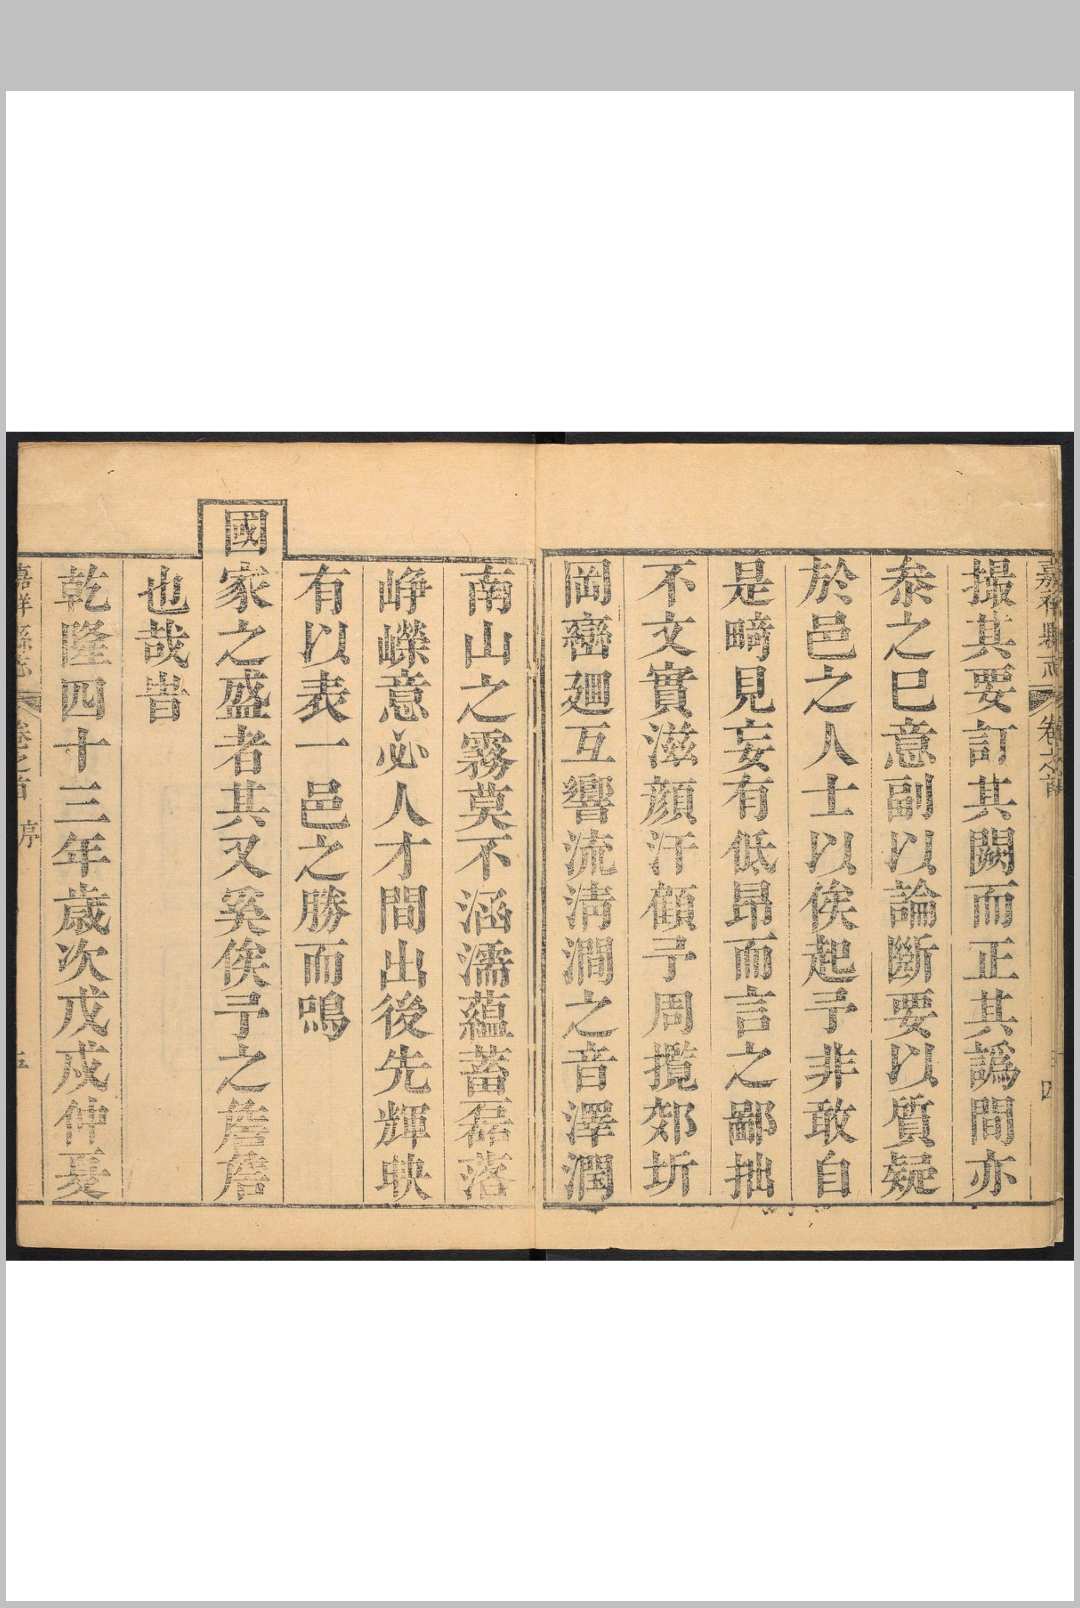 嘉祥縣志 卷之首 四
撮其要訂其闕而正其譌間亦
叅之已意副以論斷要以質疑
於邑之人士以俟起予非敢自
是疇見妄有低昂而言之鄙拙
不文實滋顔汗顧予周攬郊圻
岡巒廻互響流清澗之音澤潤
南山之霧莫不涵濡蘊蓄磊落
崢嶸意必人才間出後先輝映
有以表一邑之勝而鳴
國家之盛者其又奚俟予之詹詹
也哉旹
乾隆四十三年歲次戊戌仲夏
嘉祥縣志 卷之首 序 五